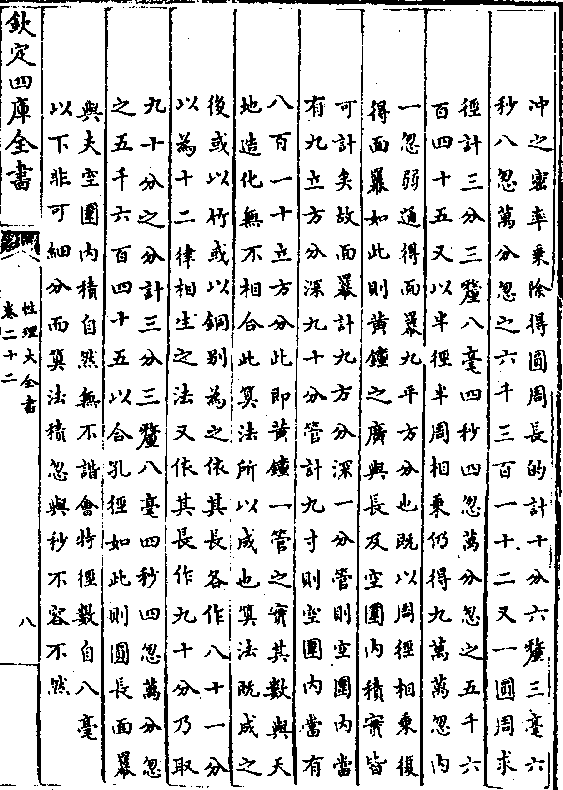 冲之密率乗除得圓周長的計十分六釐三毫六
秒八忽萬分忽之六千三百一十二又一圓周求
徑計三分三釐八毫四秒四忽萬分忽之五千六
百四十五又以半徑半周相乗仍得九萬萬忽内
一忽弱通得面羃九平方分也既以周徑相乗復
得面羃如此則黄鐘之廣與長及空圍内積實皆
可計矣故面羃計九方分深一分管則空圍内當
有九立方分深九十分管計九寸則空圍内當有
八百一十立方分此即黄鐘一管之實其數與天
地造化無不相合此算法所以成也算法既成之
後或以竹或以銅别為之依其長各作八十一分
以為十二律相生之法又依其長作九十分乃取
九十分之分計三分三釐八毫四秒四忽萬分忽
之五千六百四十五以合孔徑如此則圓長面羃
與夫空圍内積自然無不諧會特徑數自八毫
以下非可細分而算法積忽與秒不容不然
欽定四庫全書
性理大全書
卷二十二
八